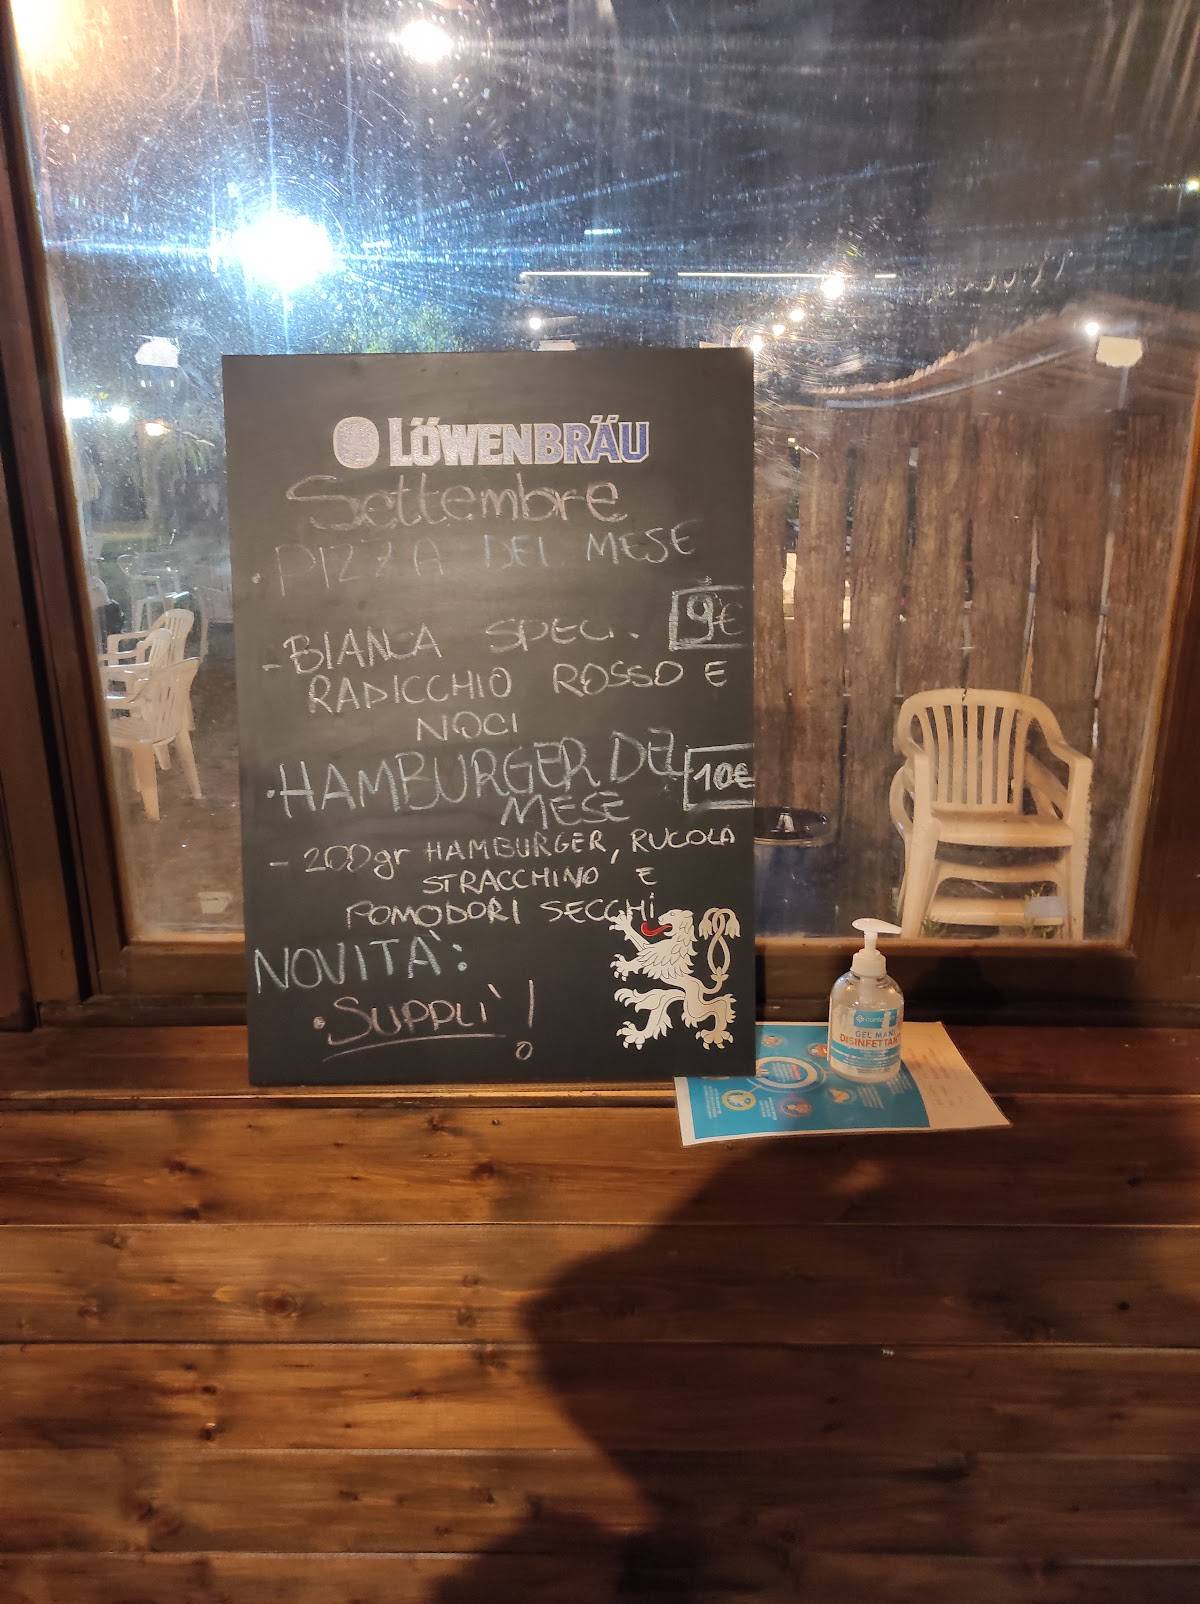 LÖWENBRÄU
Settembre
• PIZZA DEL MESE
9€
- BIANCA SPECK.
RADICCHIO ROSSO E
NOCI
• HAMBURGER DEL
MESE
10€
- 200gr HAMBURGER, RUCOLA
STRACCHINO E
POMODORI SECCHI
NOVITÀ:
• SUPPLÌ!
GEL MANI
DISINFETTANTE